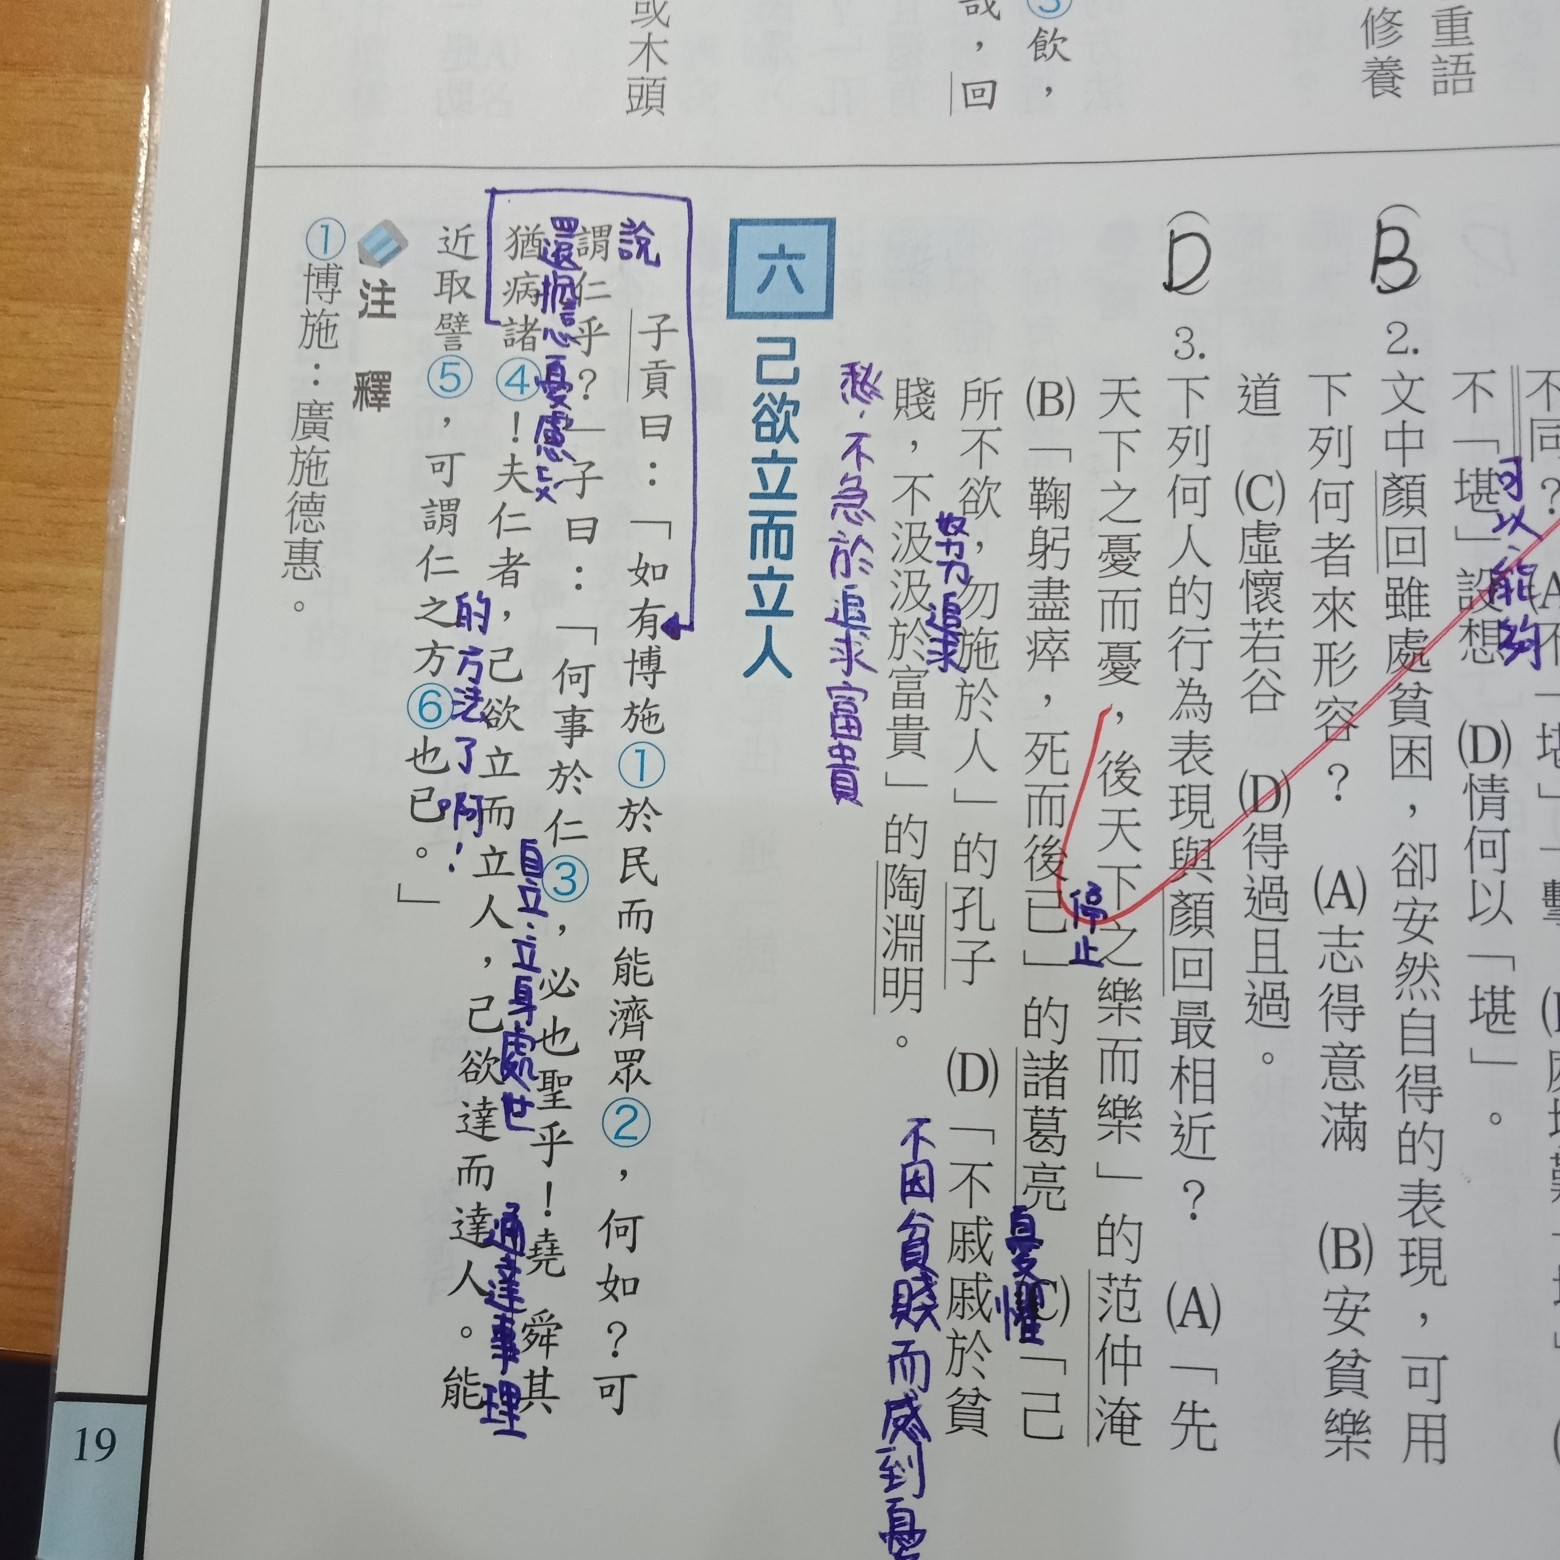 重語
修養
③飲,
哉,回
或木頭
不同?(A)不
不「堪」設想 (D)情何以「堪」。
可以、能夠
(B)2.文中顏回雖處貧困,卻安然自得的表現,可用
下列何者來形容? (A)志得意滿 (B)安貧樂
道 (C)虛懷若谷 (D)得過且過。
(D)3.下列何人的行為表現與顏回最相近? (A)「先
天下之憂而憂,後天下之樂而樂」的范仲淹
停止
(B)「鞠躬盡瘁,死而後已」的諸葛亮 (C)「己
憂懼
所不欲,勿施於人」的孔子 (D)「不戚戚於貧
努力追求
不因貧賤而感到憂
賤,不汲汲於富貴」的陶淵明。
愁,不急於追求富貴
六 己欲立而立人
子貢曰:「如有博施①於民而能濟眾②,何如?可
說
謂仁乎?」子曰:「何事於仁③,必也聖乎!堯舜其
還擔心憂慮
自立、立身處世
通達事理
猶病諸④!夫仁者,己欲立而立人,己欲達而達人。能
的方法了啊!
近取譬⑤,可謂仁之方⑥也已。」
注釋
①博施:廣施德惠。
19